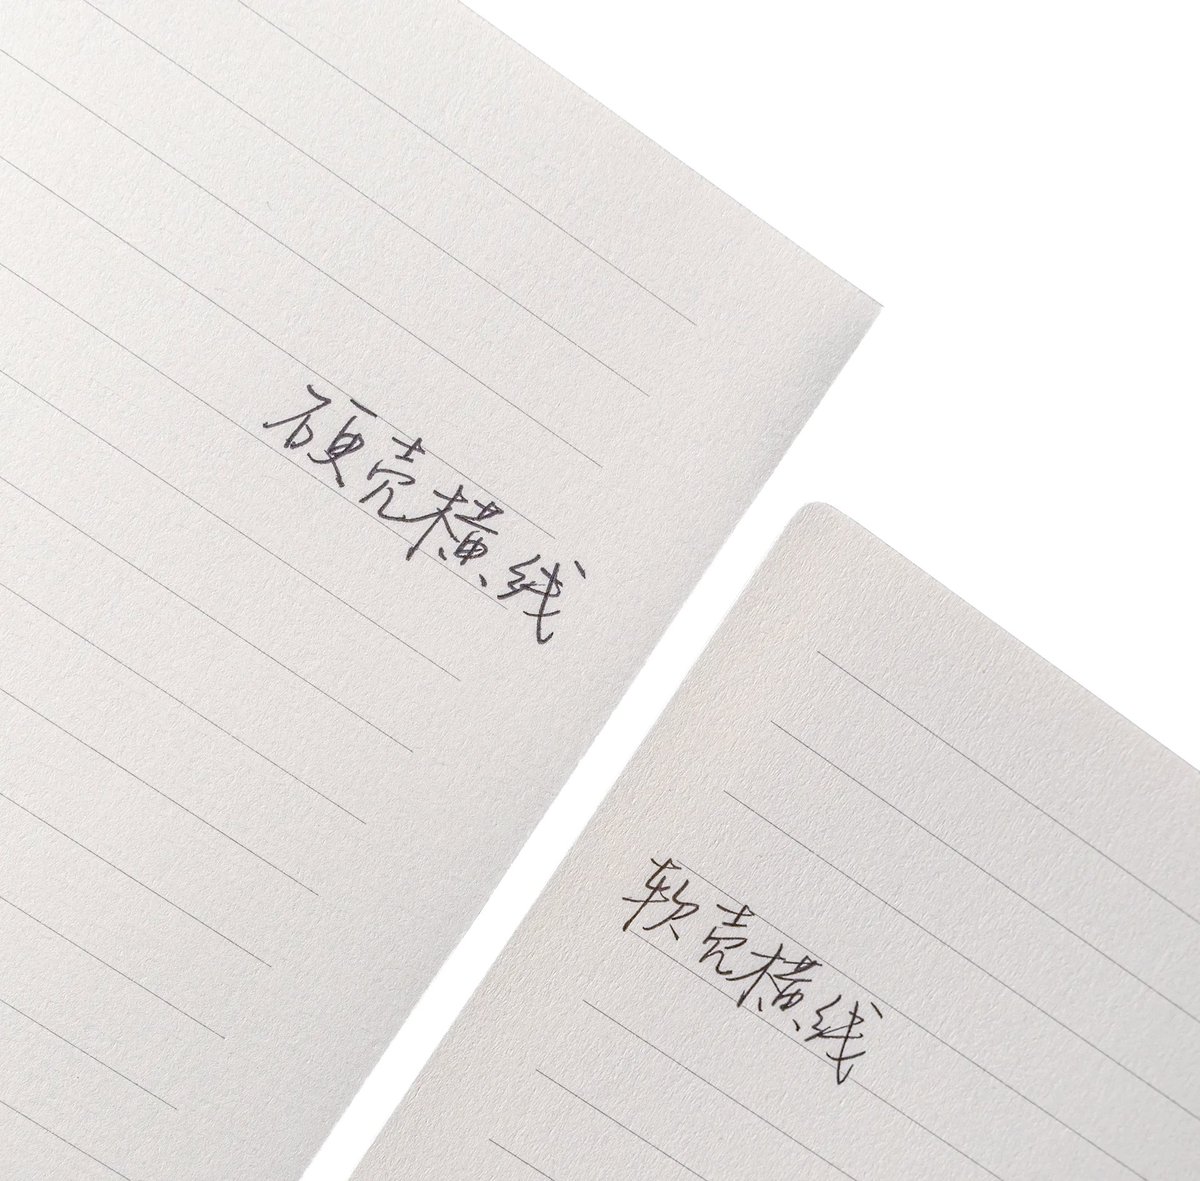 硬壳横线
软壳横线